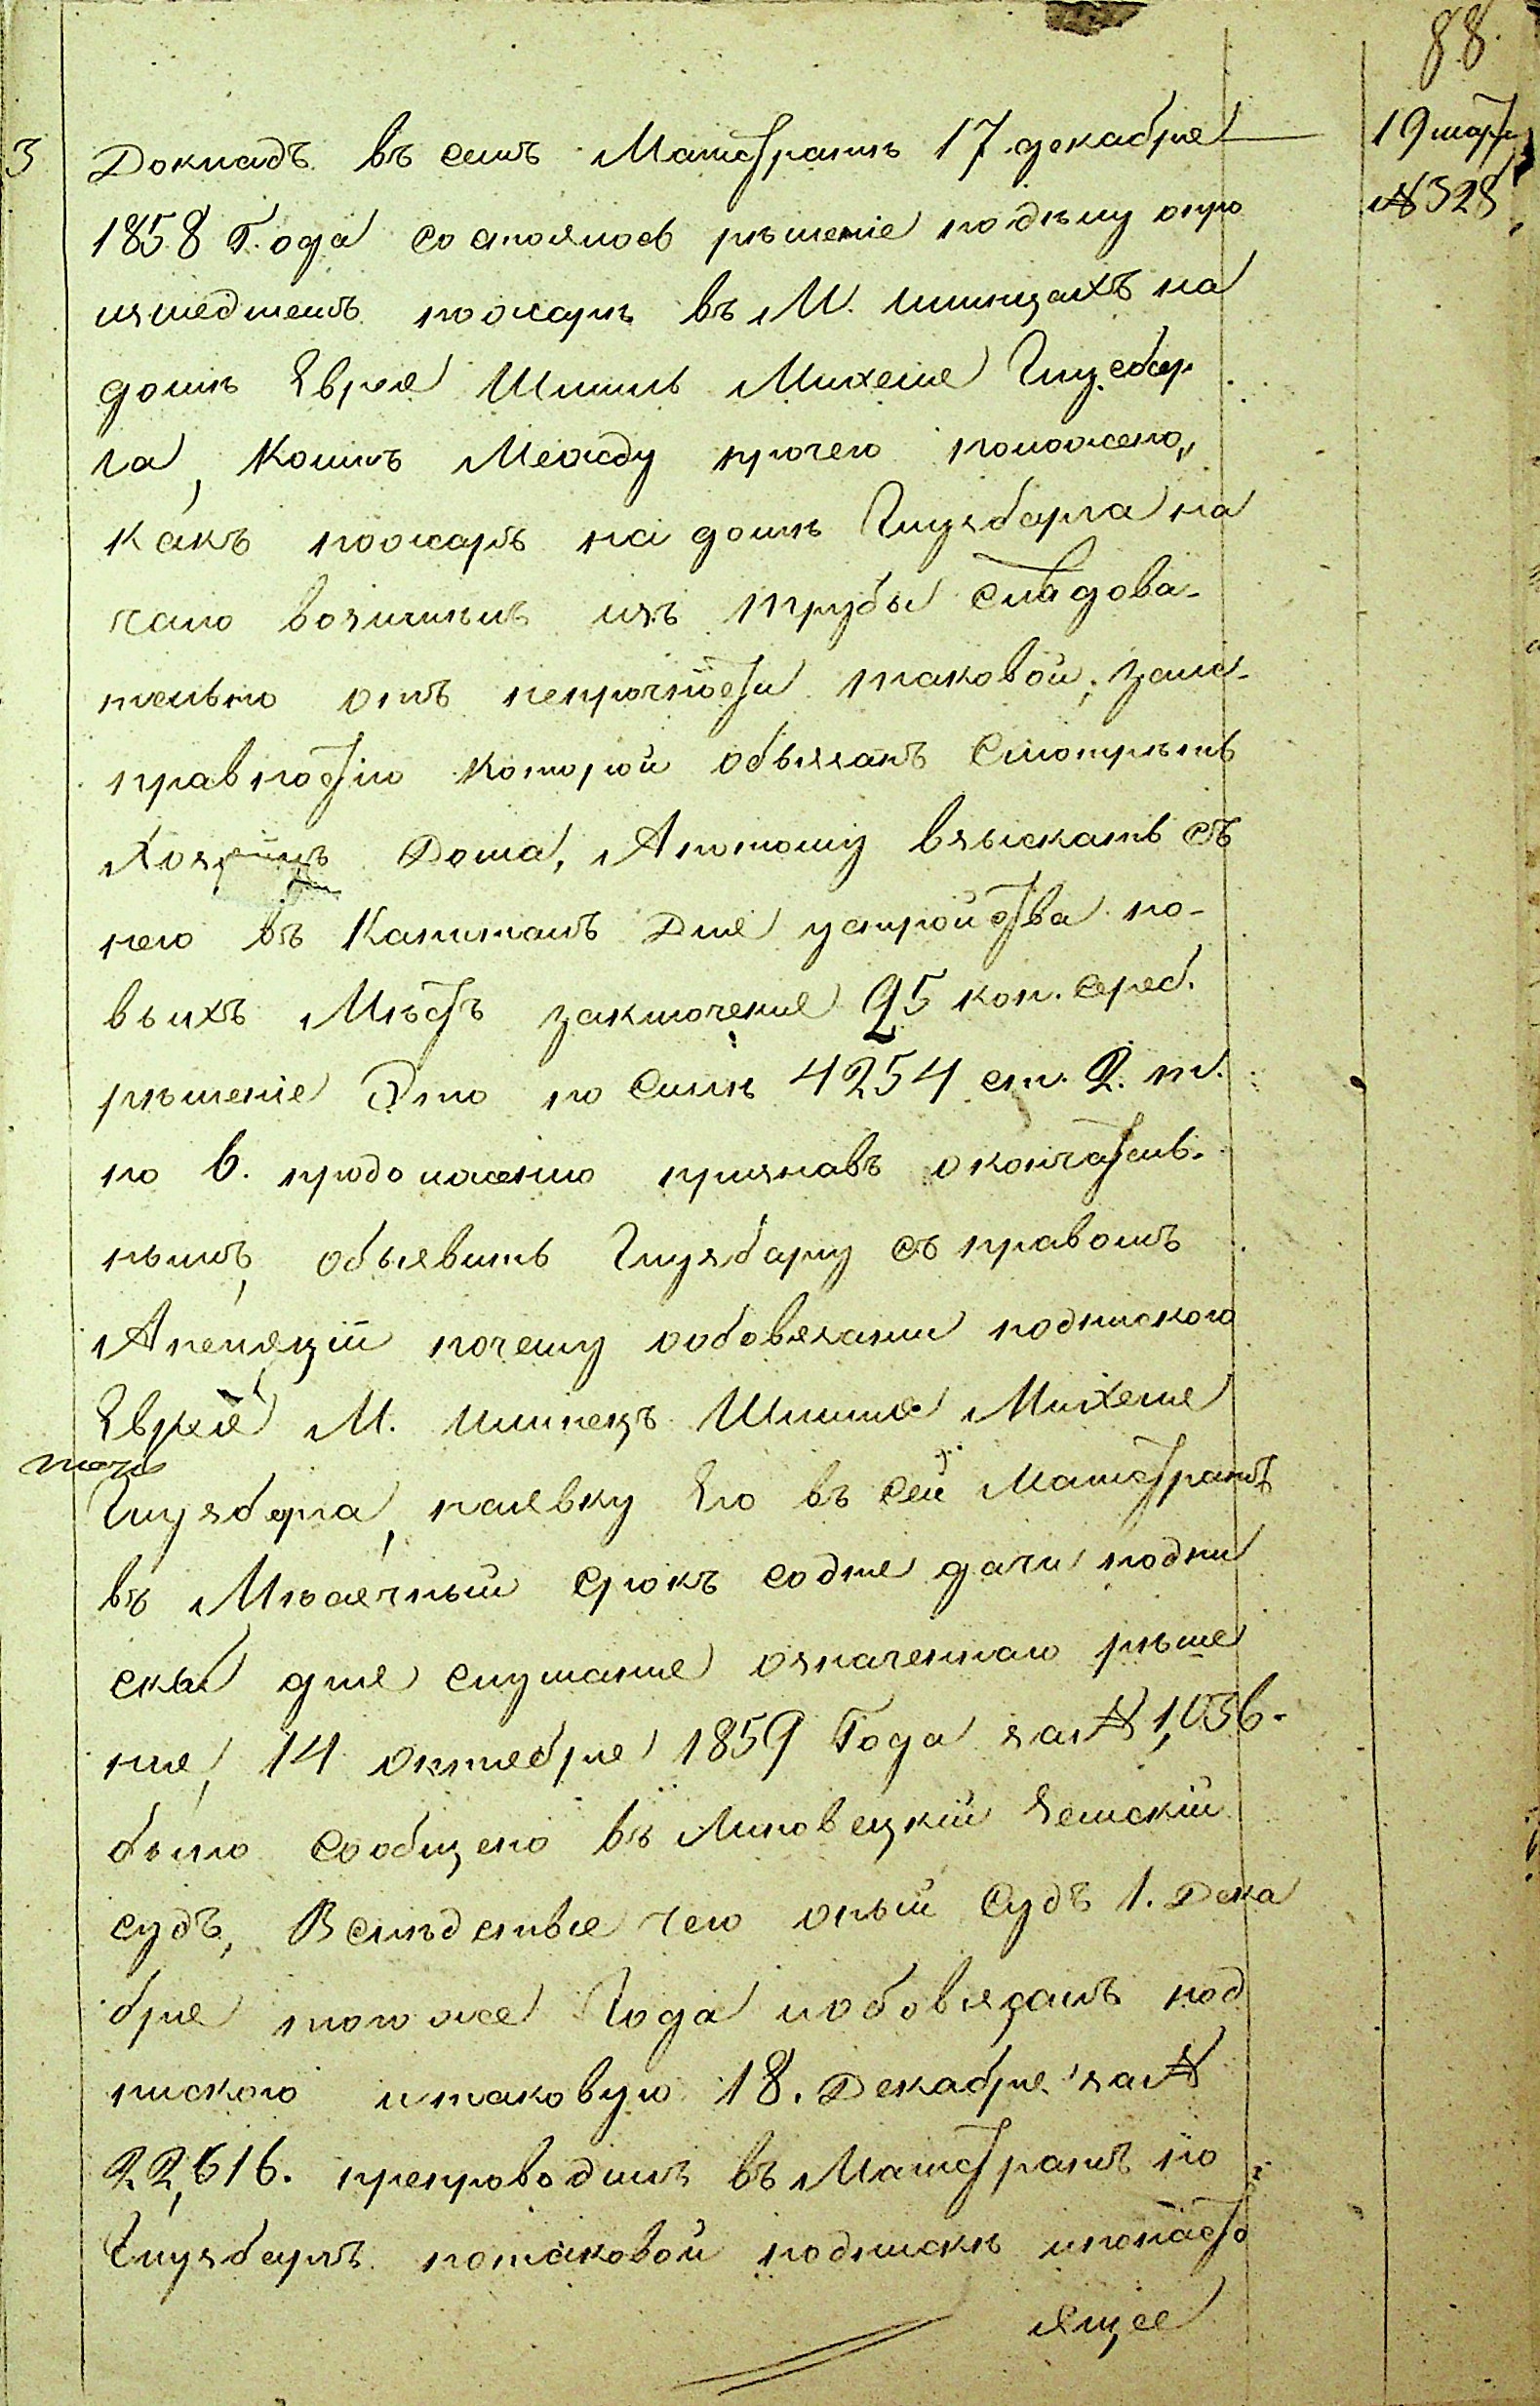 88.
19 марта
№ 328
3
Докладъ въ семъ Магистратѣ 17 декабря
1858 Года состоялось рѣшеніе подѣлу опро
изшедшемъ пожарѣ въ М. Илинцахъ на
домѣ Еврея Шмиль Михеля Глузбер
га, Коимъ Между прочего положено,,
какъ пожаръ на домѣ Глузбарга на
чало возимѣлъ изъ трубы слѣдова-
тельно отъ непрочности таковой; заис-
правностію которой обязанъ Смотрѣть
Хозяинъ Дома, Апотому взыскать съ
него въ Капиталъ Для устройства но-
выхъ Мѣстъ заключенія 95 коп. сереб.
рѣшеніе Это по силѣ 4254 ст. 2. т.
по 6. продолженію признавъ окончатель-
нымъ, объявить Глузбаргу съ правомъ
Апеляціи почему ообовязаніи подпискою
Еврея М. Илинецъ Шмиля Михеля
Глузберга, наявку Его въ сей Магистратъ
въ Мѣсячный срокъ содня дачи подпи
ски для слушанія означеннаго рѣше
нія, 14 октября 1859 Года за № 1,036.
было сообщено въ Липовецкій Земскій
судъ, Вслѣдствіе чего оный Судъ 1. Дека
бря тогоже Года иобовязалъ под
пискою итаковую 18. Декабря за №
22,616. препроводилъ въ Магистратъ но
Глузбергъ потаковой подпискѣ ипонасто
ящее